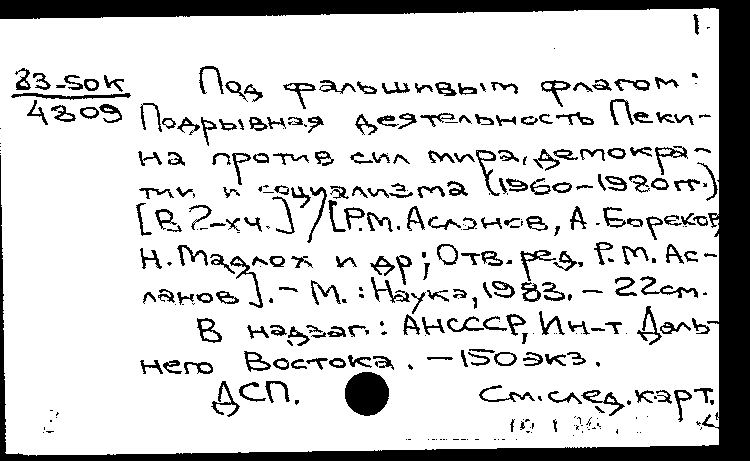 1.
83-50К
4809
Под фальшивым флагом:
Подрывная деятельность Пеки-
на против сил мира, демокра-
тии и социализма (1960-1980гг.)
[В 2-хч.] / [Р.М. Асланов, А. Бореков,
Н. Мадлох и др; Отв. ред. Р.М. Ас-
ланов]. - М.: Наука, 1983. - 22см.
В надзаг: АНСССР, Ин-т Даль-
него Востока. - 150 экз.
ДСП. См. след. карт.